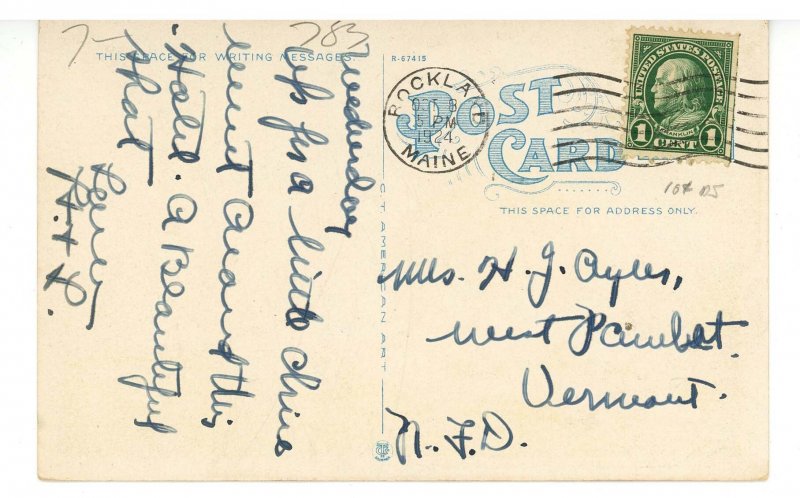 7-
783
THIS SPACE FOR WRITING MESSAGES.
R-67415
POST
CARD
THIS SPACE FOR ADDRESS ONLY.
ROCKLAND
5 PM
1924
MAINE
UNITED STATES POSTAGE
FRANKLIN
1 CENT 1
Wednesday
up for a little drive
went around this
Hotel. A Beautiful
spot
C.T. AMERICAN ART
Mrs. H. J. Ayers,
West Pawlet.
Vermont.
R.F.D.